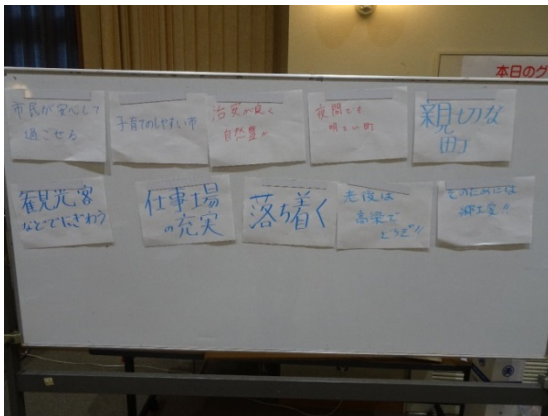 本日のグ
市民が安心して
過ごせる
子育てのしやすい市
治安が良く
自然豊か
夜間でも
明るい町
親切な
町
観光客
などでにぎわう
仕事場
の充実
落ち着く
老後は
高梁で
どうぞ!!
そのためには
商工会!!